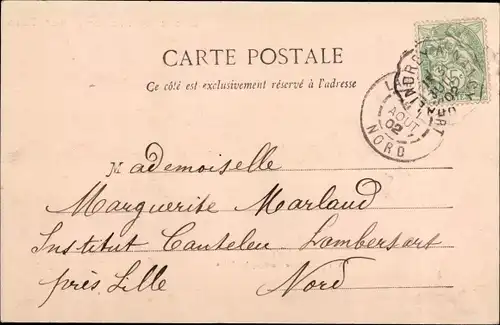 CARTE POSTALE
Ce côté est exclusivement réservé à l'adresse
AOUT
02
NORD
Mademoiselle
Marguerite Marlaud
Institut Canteleu Lambersart
près Lille Nord